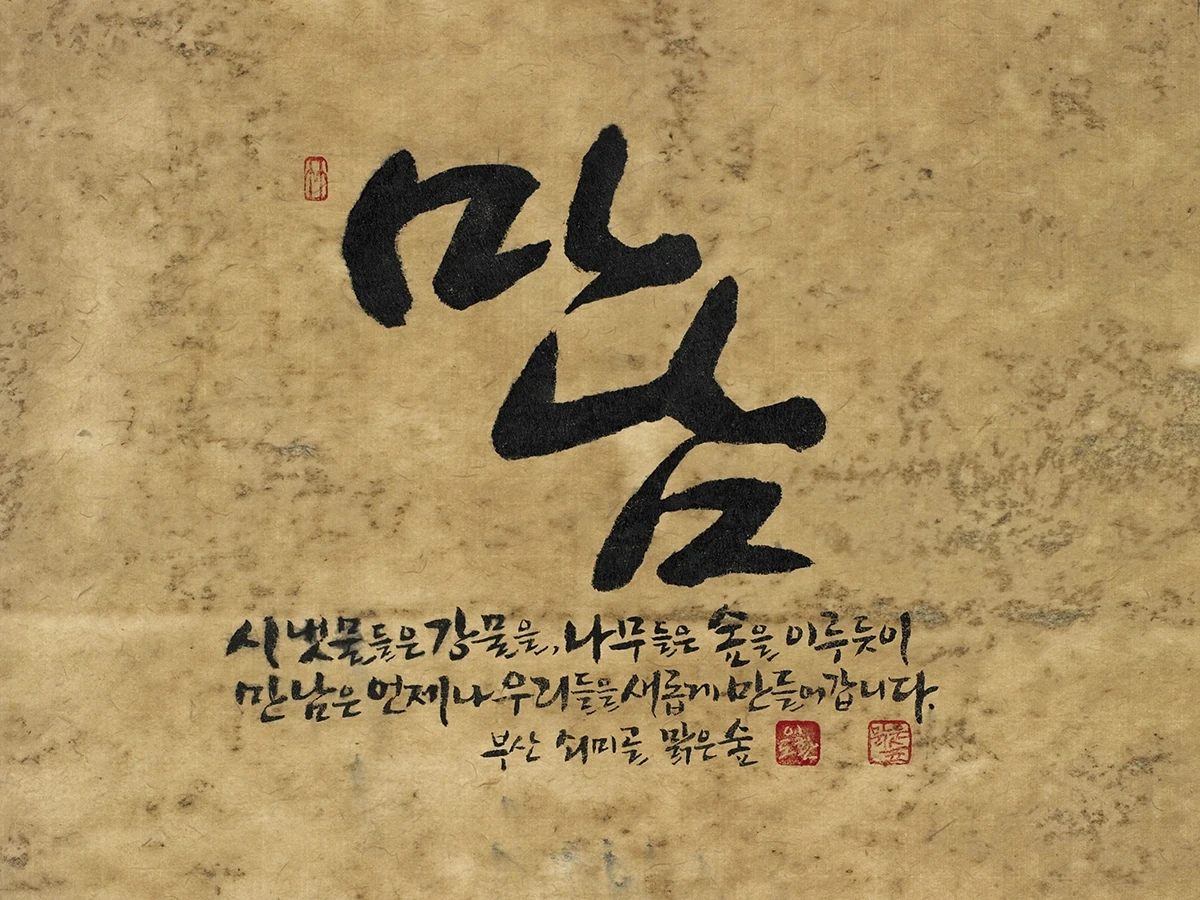 만남
시냇물들은 강물을, 나무들은 숲을 이루듯이
만남은 언제나 우리들을 새롭게 만들어갑니다.
부산 쇠미골 맑은숲
맑은숲